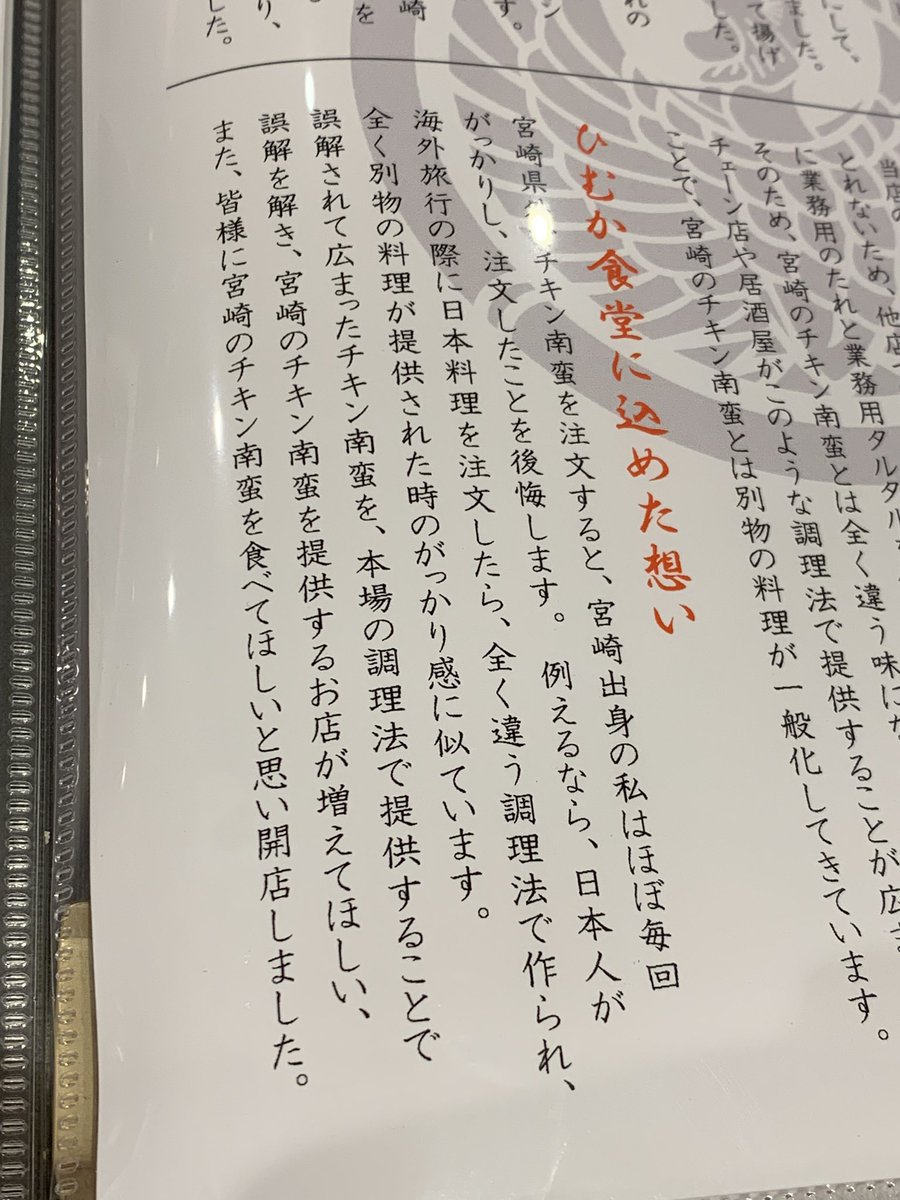 当店の
とれないため、他店
に業務用のたれと業務用タルタル
そのため、宮崎のチキン南蛮とは全く違う味にな
チェーン店や居酒屋がこのような調理法で提供することが広ま
ことで、宮崎のチキン南蛮とは別物の料理が一般化してきています。
ひむか食堂に込めた想い
宮崎県外でチキン南蛮を注文すると、宮崎出身の私はほぼ毎回
がっかりし、注文したことを後悔します。例えるなら、日本人が
海外旅行の際に日本料理を注文したら、全く違う調理法で作られ、
全く別物の料理が提供された時のがっかり感に似ています。
誤解されて広まったチキン南蛮を、本場の調理法で提供することで
誤解を解き、宮崎のチキン南蛮を提供するお店が増えてほしい、
また、皆様に宮崎のチキン南蛮を食べてほしいと思い開店しました。